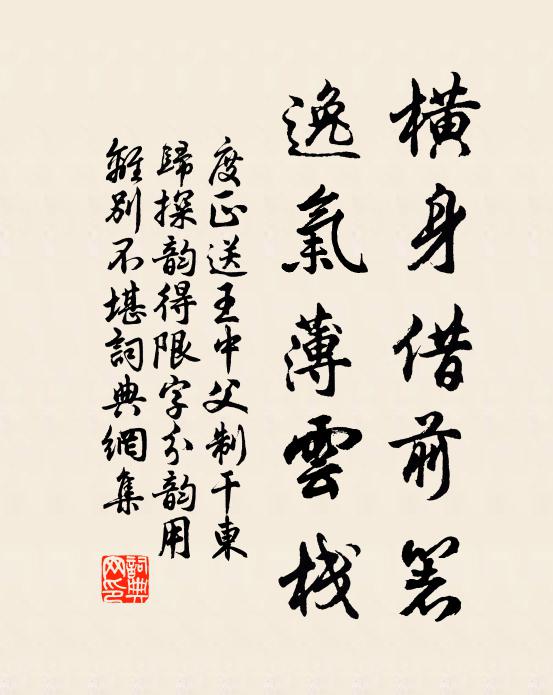 橫身借前箸
逸氣薄雲栈
度正送王中父制干東
歸探韵得限字分韵用
離別不堪詞典網集
詞典网印